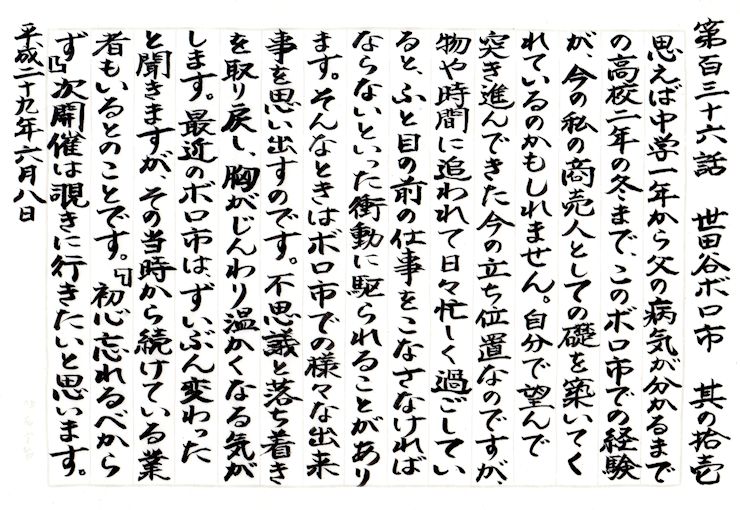 第百三十六話　世田谷ボロ市　其の拾壱
思えば中学一年から父の病気が分かるまで
の高校二年の冬まで、このボロ市での経験
が、今の私の商売人としての礎を築いてく
れているのかもしれません。自分で望んで
突き進んできた今の立ち位置なのですが、
物や時間に追われて日々忙しく過ごしてい
ると、ふと目の前の仕事をこなさなければ
ならないといった衝動に駆られることがあり
ます。そんなときはボロ市での様々な出来
事を思い出すのです。不思議と落ち着き
を取り戻し、胸がじんわり温かくなる気が
します。最近のボロ市は、ずいぶん変わった
と聞きますが、その当時から続けている業
者もいるとのことです。『初心忘れるべから
ず』次開催は覗きに行きたいと思います。
平成二十九年六月八日